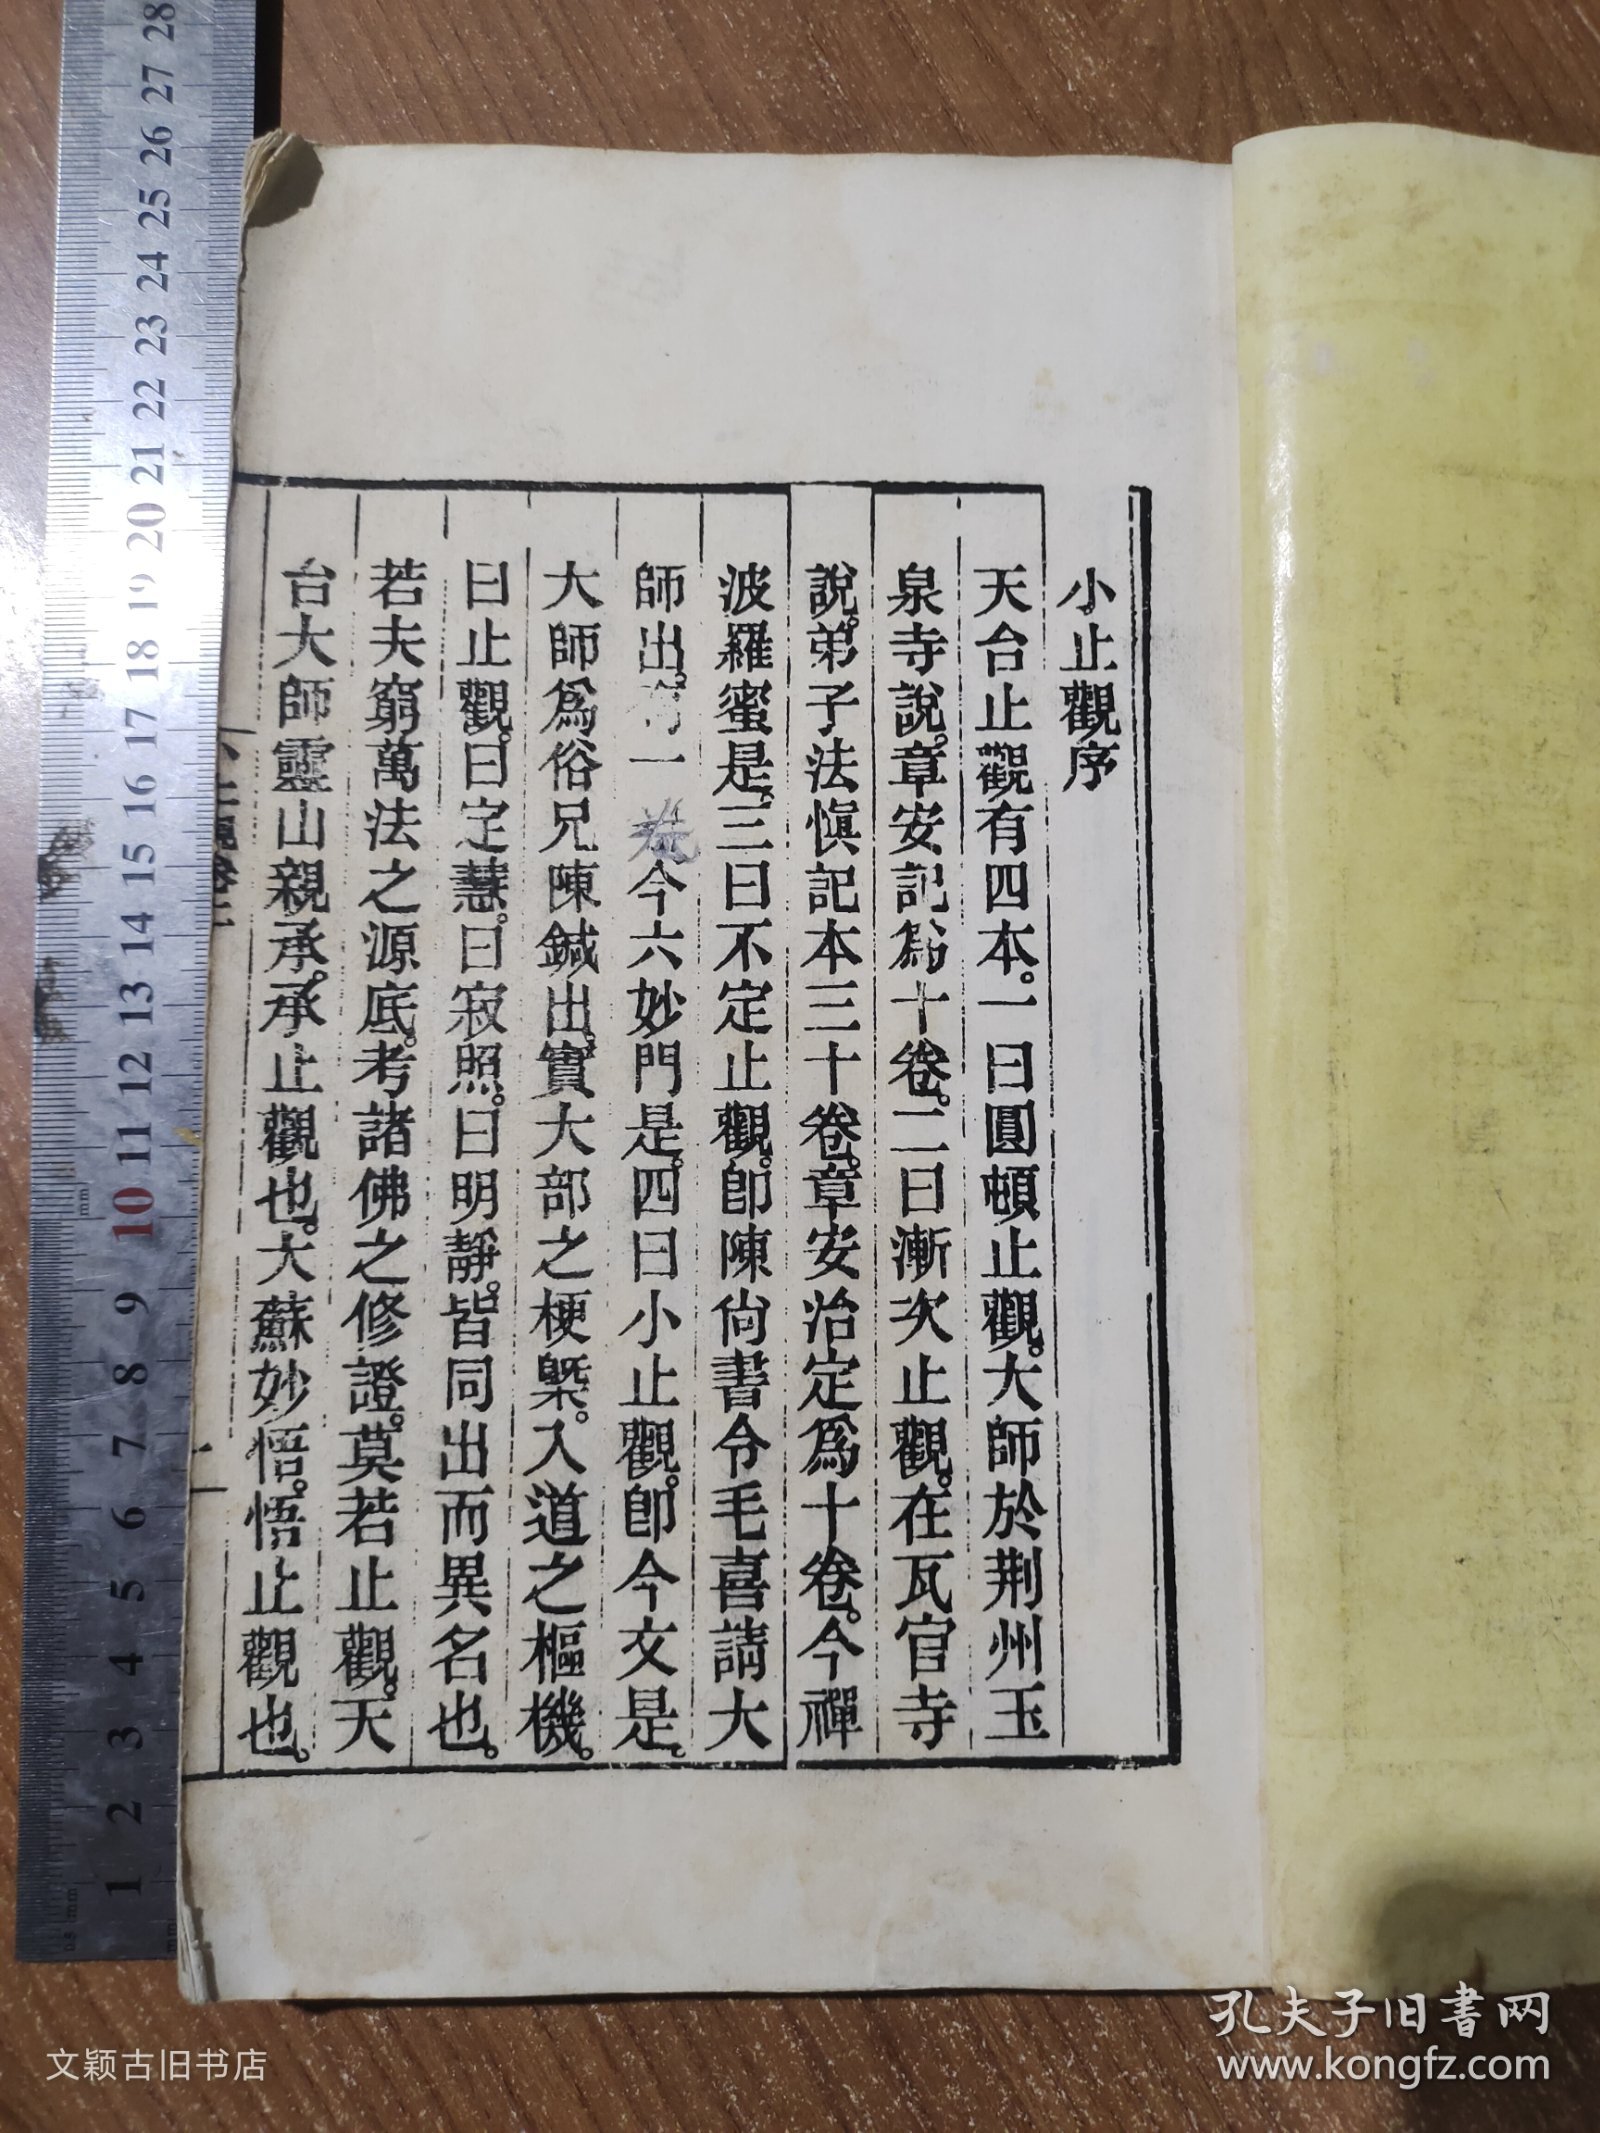 小止觀序
天台止觀有四本。一曰圓頓止觀。大師於荆州玉
泉寺說。章安記爲十卷。二曰漸次止觀。在瓦官寺
說。弟子法愼記本三十卷。章安治定爲十卷。今禪
波羅蜜是。三曰不定止觀。卽陳尙書令毛喜請大
師出。有一卷今六妙門是。四曰小止觀。卽今文是。
大師爲俗兄陳鍼出。實大部之梗槩。入道之樞機。
曰止觀。曰定慧。曰寂照。曰明靜。皆同出而異名也。
若夫窮萬法之源底。考諸佛之修證。莫若止觀。天
台大師靈山親承。承止觀也。大蘇妙悟。悟止觀也。
孔夫子旧书网
www.kongfz.com
文颖古旧书店
28
27
26
25
24
23
22
21
20
19
18
17
16
15
14
13
12
11
10
9
8
7
6
5
4
3
2
1
0.5 mm
mm